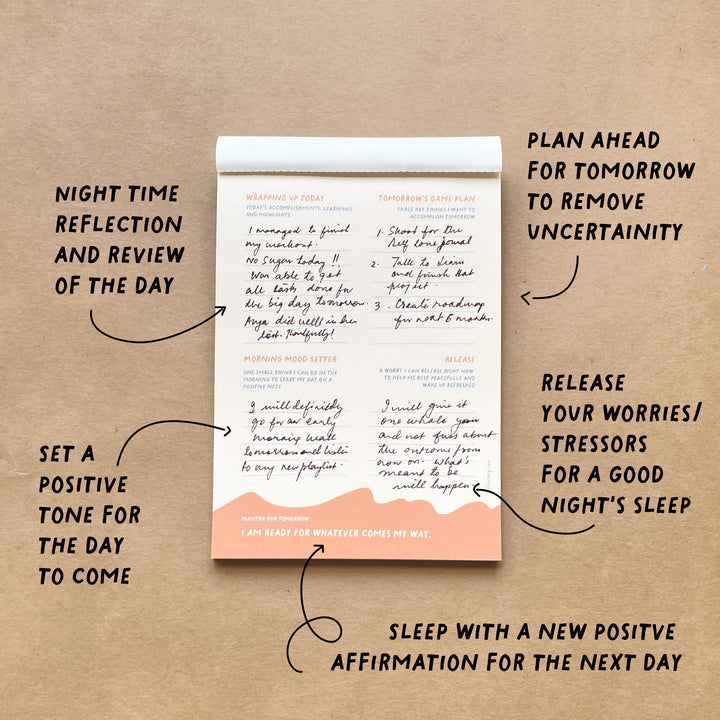 NIGHT TIME
REFLECTION
AND REVIEW
OF THE DAY
PLAN AHEAD
FOR TOMORROW
TO REMOVE
UNCERTAINITY
WRAPPING UP TODAY
TODAY'S ACCOMPLISHMENTS, LEARNINGS
AND HIGHLIGHTS
I managed to finish
my workout.
No Sugar today !!
Was able to get
all tasks done for
the big day tomorrow.
did well in her
test. Thankfully!
TOMORROW'S GAME PLAN
THREE KEY THINGS I WANT TO
ACCOMPLISH TOMORROW
1. Shoot for the
Self love journal
2. Talk to team
and finish that
project.
3. Create roadmap
for next 6 months.
MORNING MOOD SETTER
ONE SMALL THING I CAN DO IN THE
MORNING TO START MY DAY ON A
POSITIVE NOTE
I will definitely
go for an early
morning walk
tomorrow and listen
to my new playlist.
RELEASE
A WORRY I CAN RELEASE RIGHT NOW
TO HELP ME REST PEACEFULLY AND
WAKE UP REFRESHED
I will give it
one whole year
and not fuss about
the outcome from
now on. What's
meant to be
will happen
MANTRA FOR TOMORROW
I AM READY FOR WHATEVER COMES MY WAY.
SET A
POSITIVE
TONE FOR
THE DAY
TO COME
RELEASE
YOUR WORRIES/
STRESSORS
FOR A GOOD
NIGHT'S SLEEP
SLEEP WITH A NEW POSITVE
AFFIRMATION FOR THE NEXT DAY